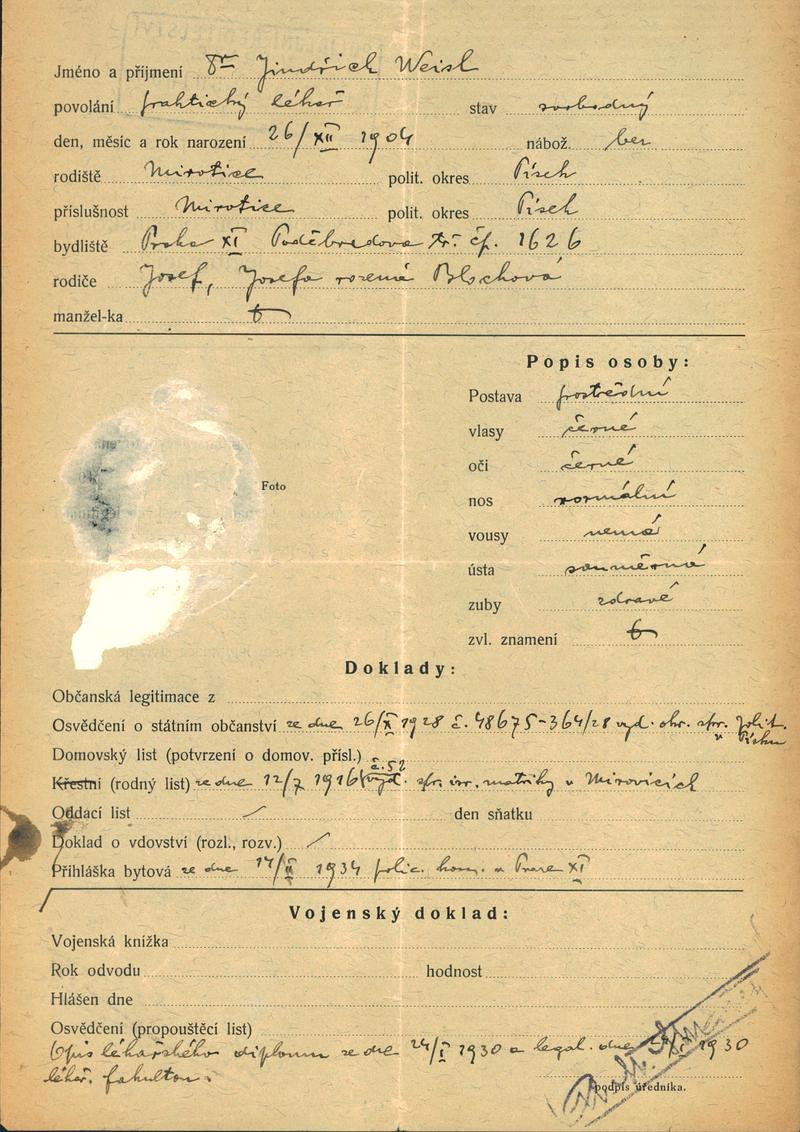 Jméno a příjmení Dr Jindřich Weisl
povolání praktický lékař stav svobodný
den, měsíc a rok narození 26/XII 1904 nábož. bez
rodiště Mirotice polit. okres Písek
příslušnost Mirotice polit. okres Písek
bydliště Praha XI Poděbradova tř. čp. 1626
rodiče Josef, Josefa rozená Blochová
manžel-ka
Popis osoby:
Postava prostřední
vlasy černé
oči černé
Foto
nos normální
vousy nemá
ústa souměrná
zuby zdravé
zvl. znamení
Doklady:
Občanská legitimace z
Osvědčení o státním občanství ze dne 26/X 1928 č. 48675-364/28 vyd. okr. spr. polit.
v Písku
Domovský list (potvrzení o domov. přísl.)
č. 52
Křestní (rodný list) ze dne 12/7 1916 vyd. spr. isr. matriky v Mirovicích
Oddací list den sňatku
Doklad o vdovství (rozl., rozv.)
Přihláška bytová ze dne 14/II 1934 polic. kom. v Praze XI
Vojenský doklad:
Vojenská knížka
Rok odvodu hodnost
Hlášen dne
Osvědčení (propouštěcí list)
Opis lékařského diplomu ze dne 24/I 1930 a legal. dne 1930
lékař. fakultou.
podpis úředníka.